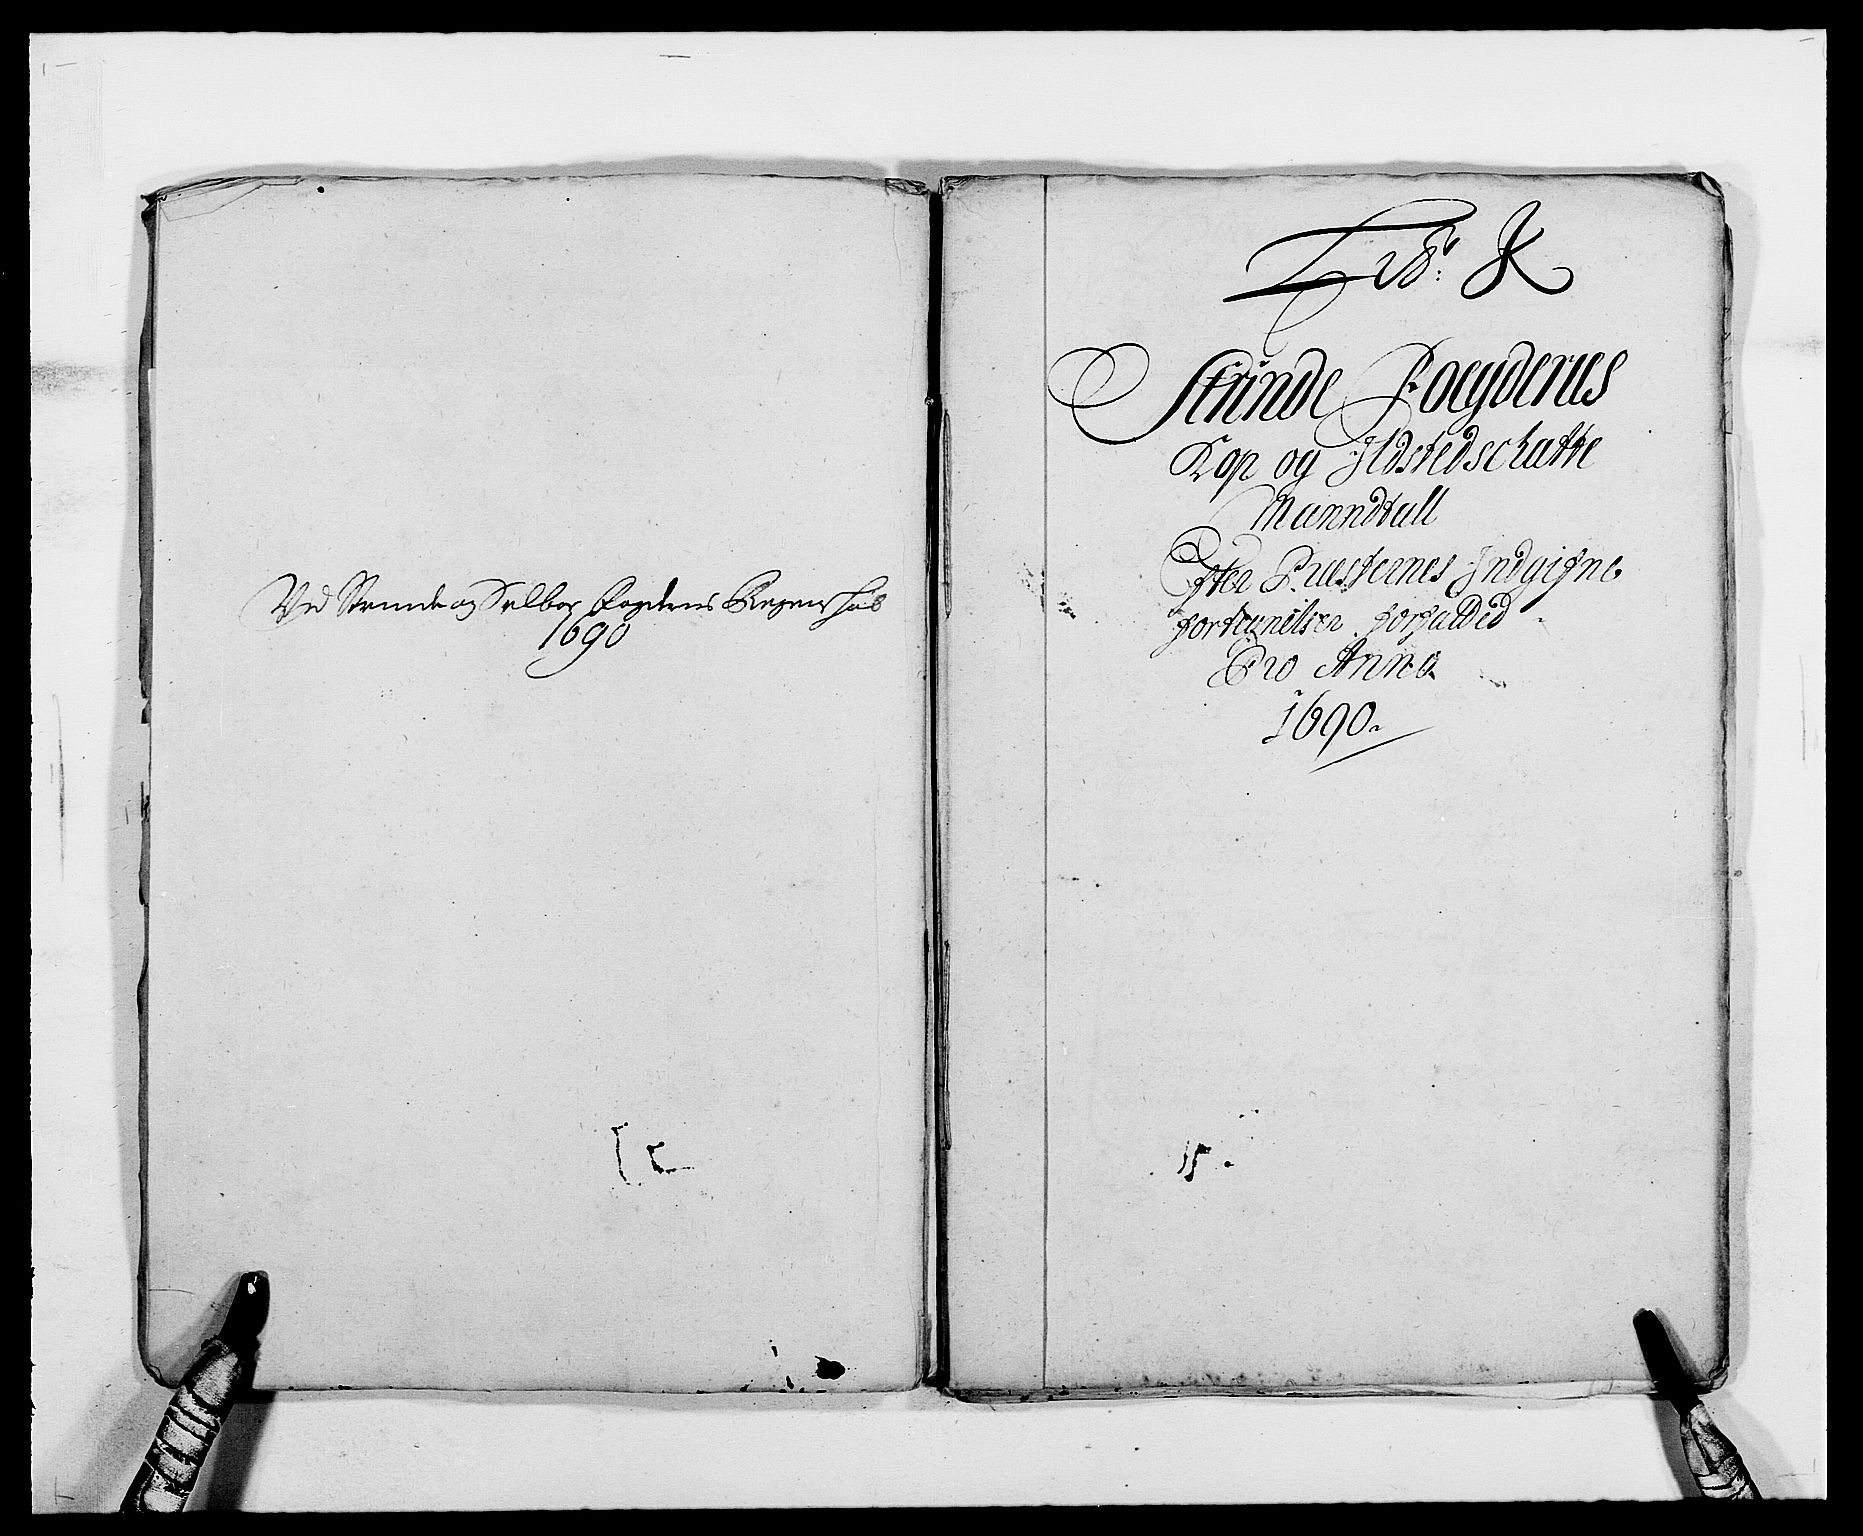 Ved Strinde og Selboe Fogderis Regenschab
1690
Litr: K
Strinde Fogderies
Kop og Ildstedschatte
Manndtall
Efter Præsternes Indgifne
fortegnelser forfatted
Pro Anno
1690.
15.